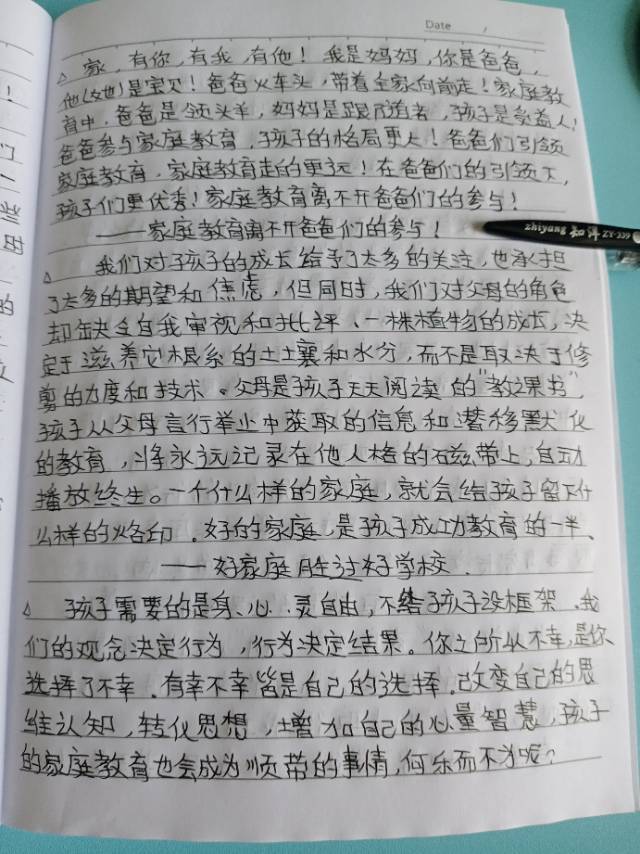 Date /
△ 家,有你,有我,有他!我是妈妈,你是爸爸,
他(她)是宝贝!爸爸火车头,带着全家向前走!家庭教
育中,爸爸是领头羊,妈妈是跟随者,孩子是受益人!
爸爸参与家庭教育,孩子的格局更大!爸爸们引领
家庭教育,家庭教育走的更远!在爸爸们的引领下,
孩子们更优秀!家庭教育离不开爸爸们的参与!
——家庭教育离不开爸爸们的参与!
zhiyang 知洋 ZY-339
△ 我们对孩子的成长给予了太多的关注,也承担
了太多的期望和焦虑,但同时,我们对父母的角色
却缺乏自我审视和批评、一株植物的成长,决
定于滋养它根系的土壤和水分,而不是取决于修
剪的力度和技术。父母是孩子天天阅读的“教课书”,
孩子从父母言行举止中获取的信息和潜移默化
的教育,将永远记录在他人格的磁带上,自动
播放终生。一个什么样的家庭,就会给孩子留下什
么样的烙印.好的家庭,是孩子成功教育的一半、
——好家庭胜过好学校.
△ 孩子需要的是身、心、灵自由,不给孩子设框架.我
们的观念决定行为,行为决定结果。你之所以不幸,是你
选择了不幸.有幸不幸皆是自己的选择.改变自己的思
维认知,转化思想,增加自己的心量智慧,孩子
的家庭教育也会成为顺带的事情,何乐而不为呢?